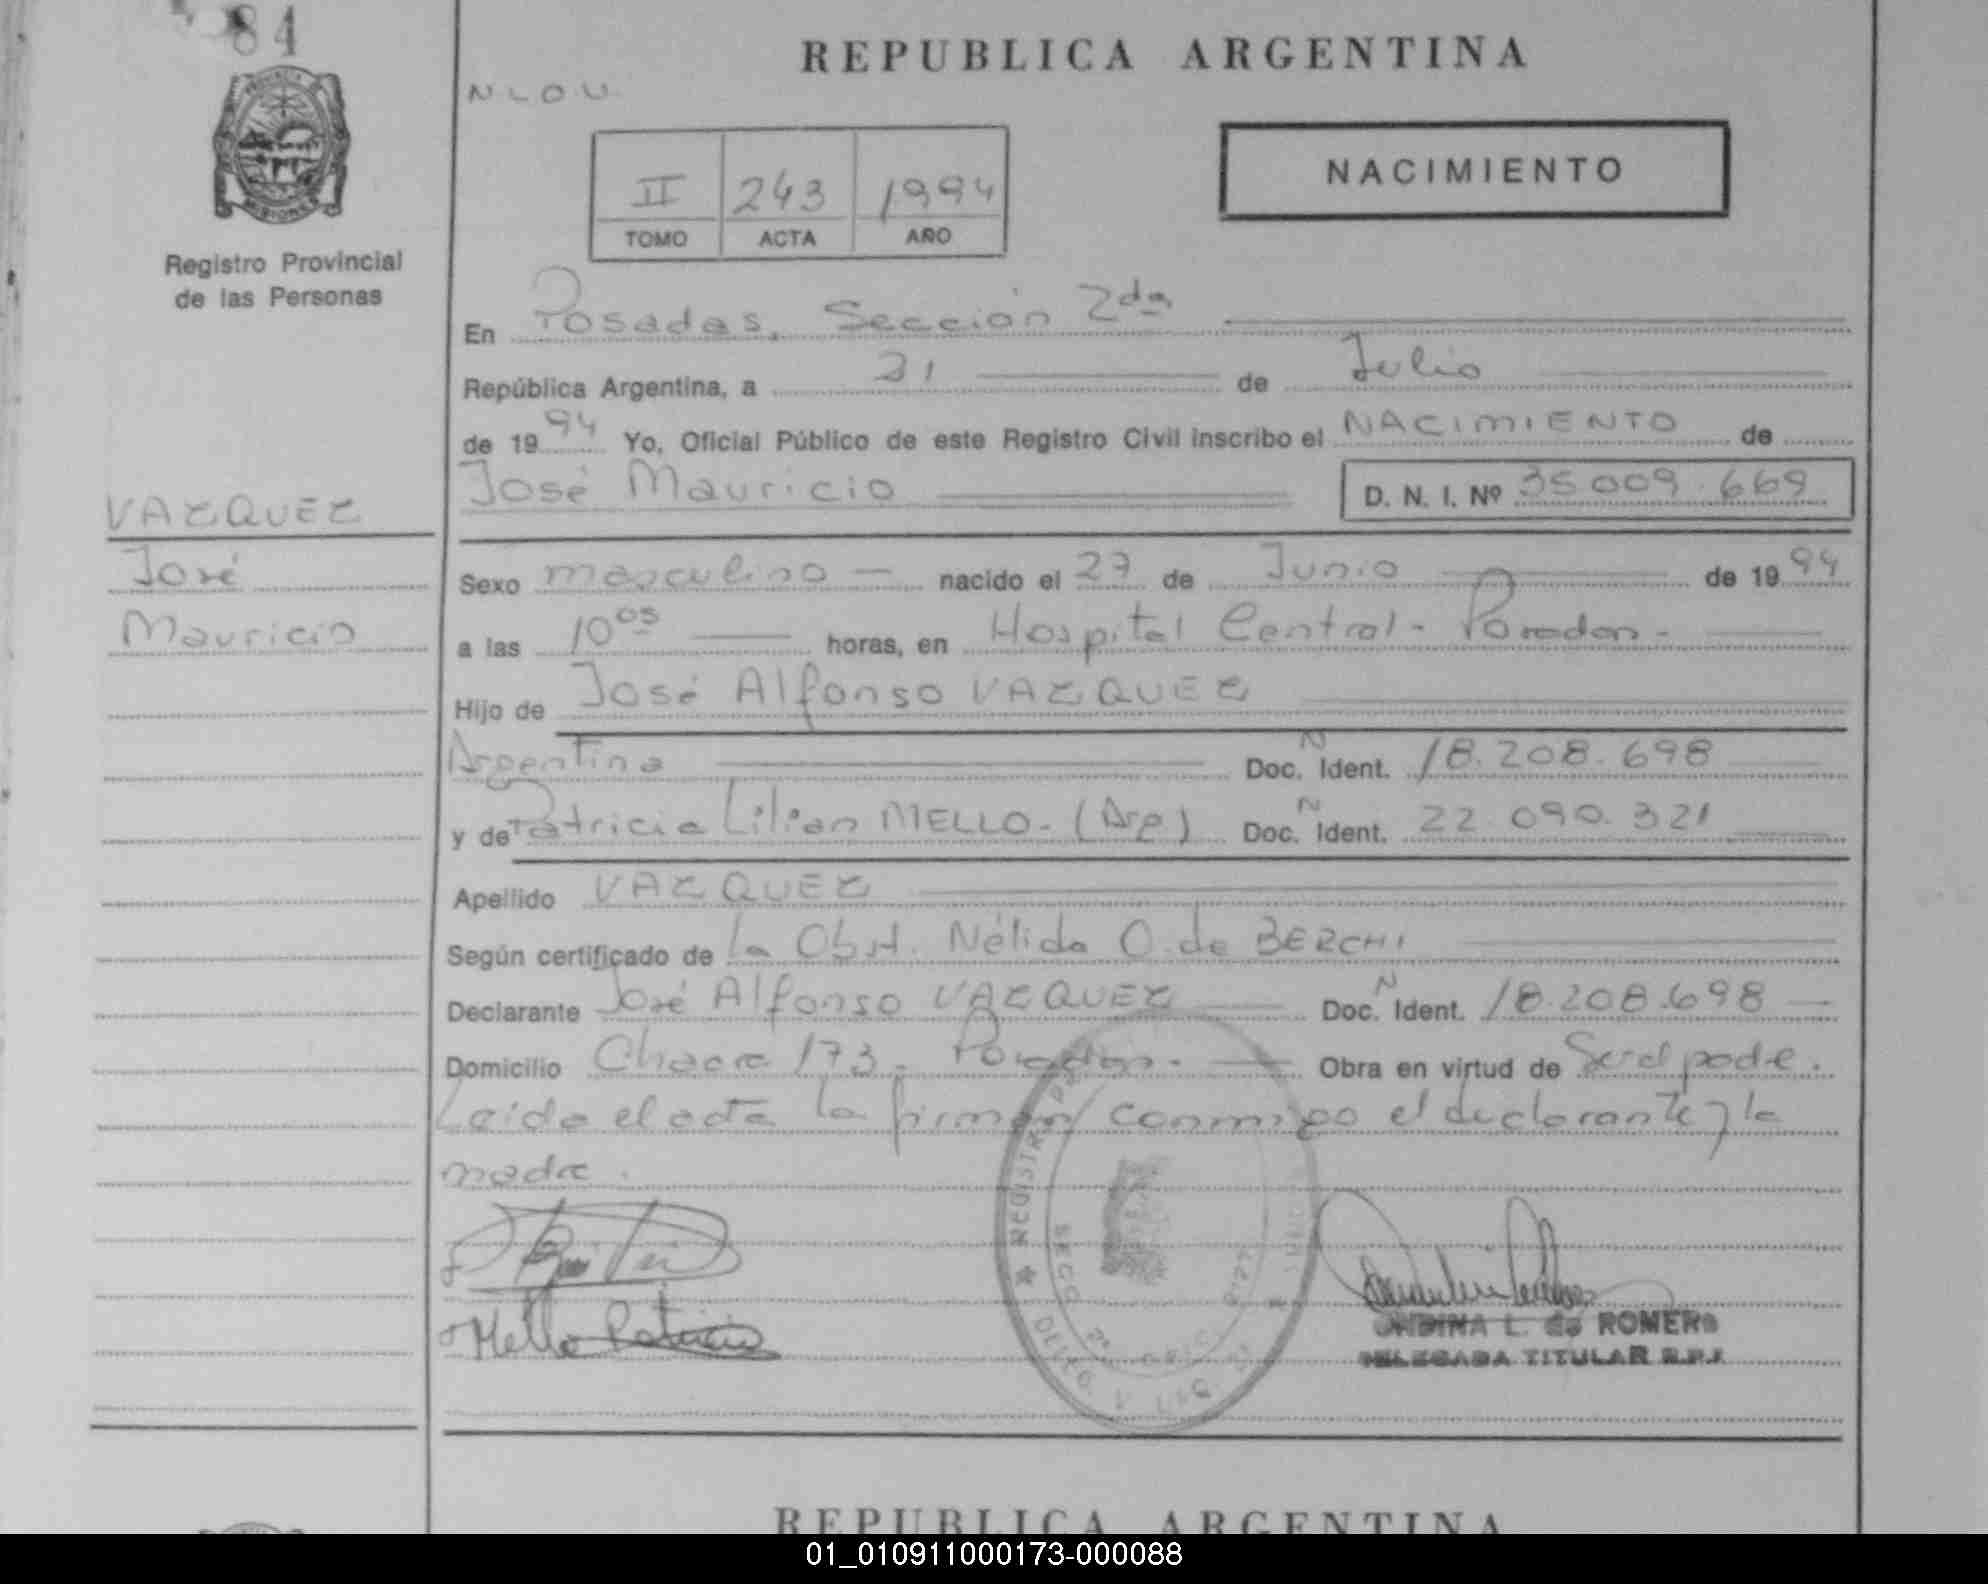 84
REPUBLICA ARGENTINA
NLOU
NACIMIENTO
II 243 1994
TOMO ACTA AÑO
MISIONES
Registro Provincial
de las Personas
En Posadas, Sección 2da
República Argentina, a 21 de Julio
de 1994 Yo, Oficial Público de este Registro Civil inscribo el NACIMIENTO de
José Mauricio D. N. I. Nº 35 009.669
VAZQUEZ
José
Mauricio
Sexo masculino nacido el 27 de Junio de 1994
a las 10 05 horas, en Hospital Central - Posadas -
Hijo de José Alfonso VAZQUEZ
Argentina Doc. N Ident. 18.208.698
y de Patricia Lilian MELLO - (Arg) Doc. N Ident. 22 090.321
Apellido VAZQUEZ
Según certificado de la Obst. Nélida O. de BERCHI
Declarante José Alfonso VAZQUEZ Doc. N Ident. 18.208.698
Domicilio Chacra 173 - Posadas - Obra en virtud de Ser el padre.
Leída el acta la firman conmigo el declarante y la
madre.
Mello Patricia
ONDINA L. de ROMERO
DELEGADA TITULAR R.P.P.
REPUBLICA ARGENTINA
01_010911000173-000088